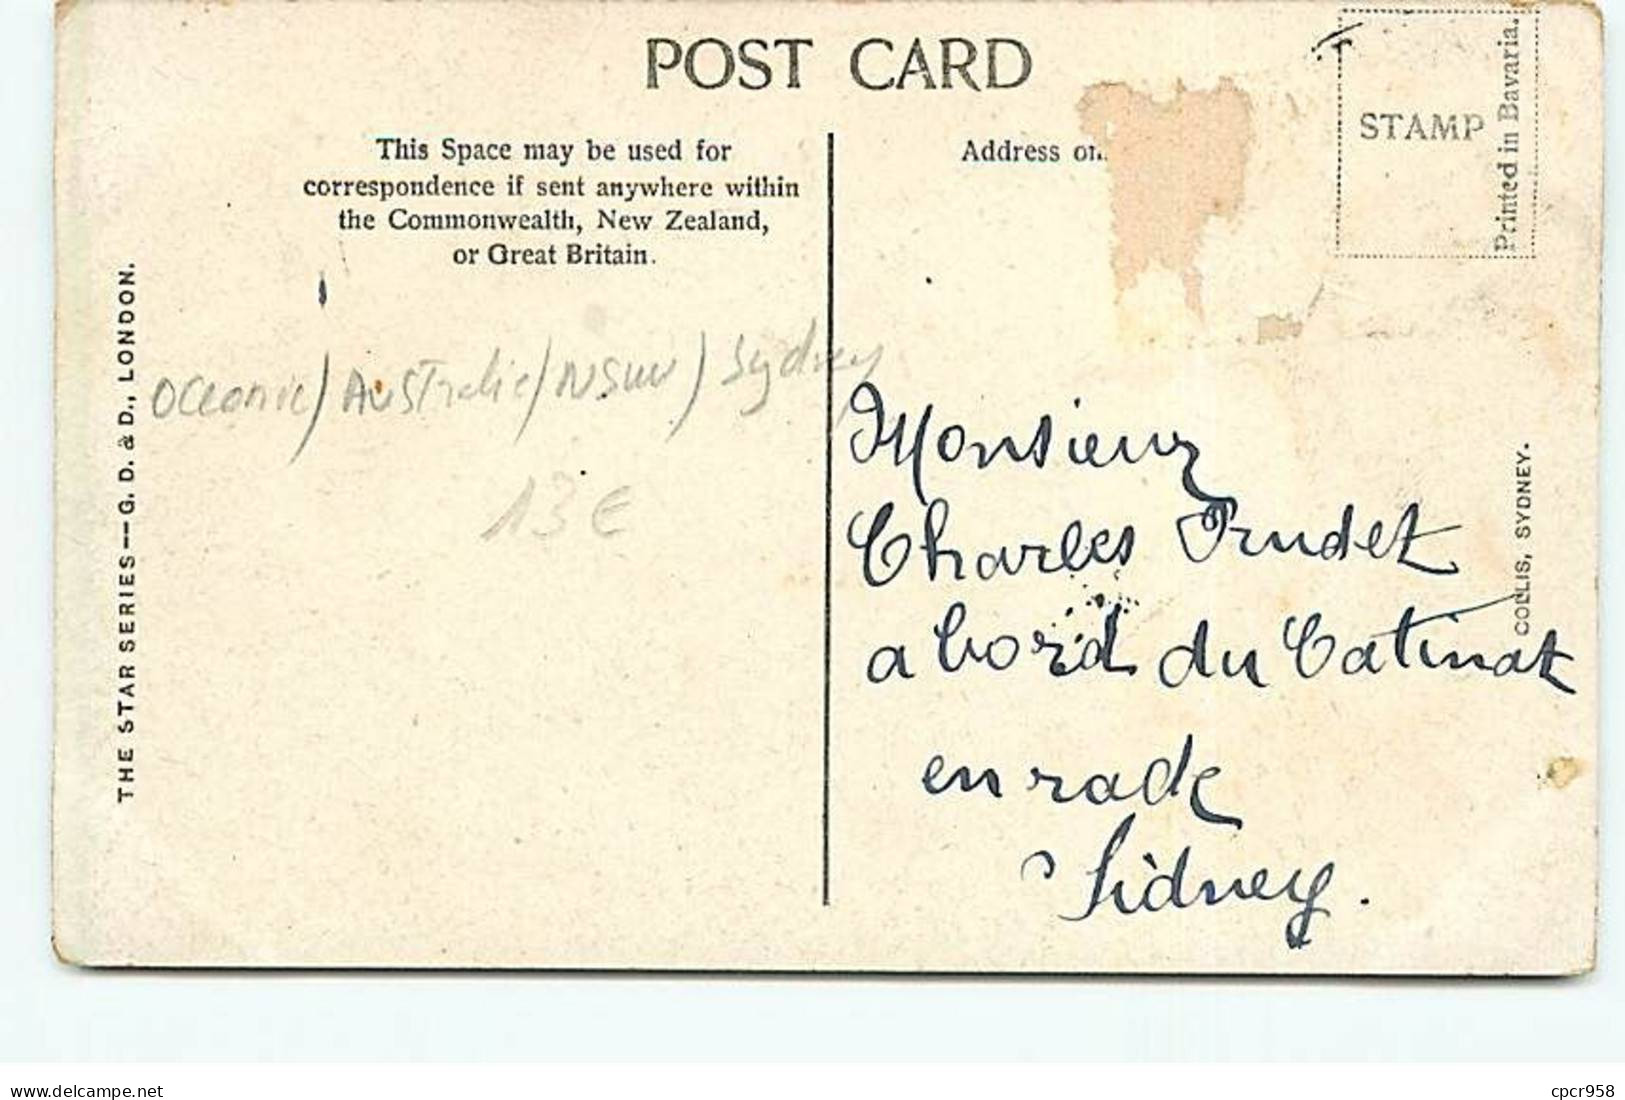 POST CARD
STAMP
Printed in Bavaria.
This Space may be used for
correspondence if sent anywhere within
the Commonwealth, New Zealand,
or Great Britain.
Address on
THE STAR SERIES—G. D. & D., LONDON.
Oceanie/Australie/NSW/Sydney
13 €
Monsieur
Charles Prudet
a bord du Catinat
en rade
Sidney.
COLLIS, SYDNEY.
delcampe.net
cpcr958